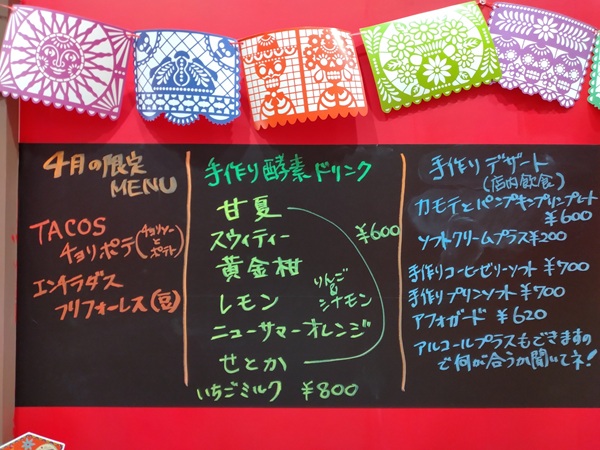 4月の限定
MENU
TACOS
チョリポテ(チョリソーとポテト)
エンチラダス
フリフォーレス(豆)
手作り酵素ドリンク
甘夏
スウィティー ¥600
黄金柑
レモン
りんご&シナモン
ニューサマーオレンジ
せとか
いちごミルク ¥800
手作りデザート
(店内飲食)
カモテとパンプキンプリンプレート
¥600
ソフトクリームプラス¥200
手作りコーヒーゼリーソフト ¥700
手作りプリンソフト ¥700
アフォガード ¥620
アルコールプラスもできますの
で何が合うか聞いてネ!